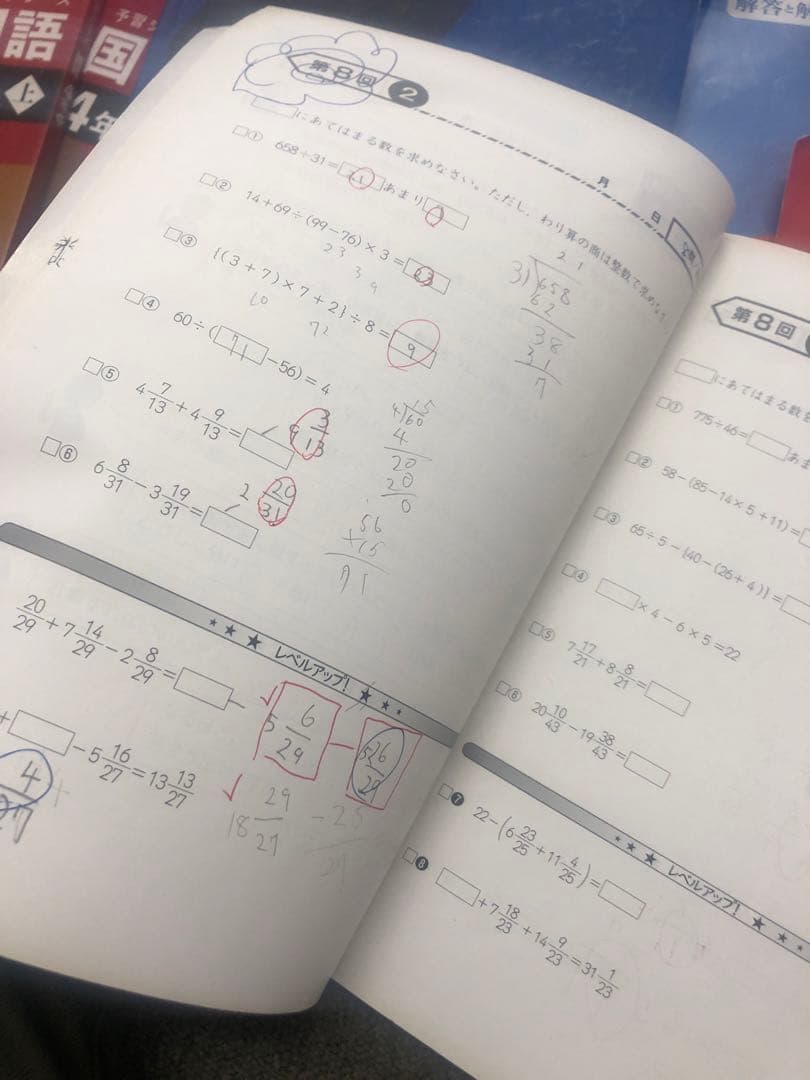 語
上
国
予習シ
4年
解答と解
第8回 2
□にあてはまる数を求めなさい。ただし、わり算の商は整数で求めなさい
月 日
□① 658÷31=□あまり□
21
□② 14+69÷(99-76)×3=□
23
23
3
9
□③ {(3+7)×7+2}÷8=□
9
10
72
□④ 60÷(□-56)=4
71
□⑤ 4 7/13+4 9/13=□
9 3/13
□⑥ 6 8/31-3 19/31=□
2 20/31
21
31)658
62
38
31
7
15
4)60
4
20
20
0
56
×15
71
レベルアップ!
20/29+7 14/29-2 8/29=□
5 6/29
5 26/29
+□-5 16/27=13 13/27
18 29/27
4/27
第8回
□にあてはまる数を
□① 775÷46=□あま
□② 58-(85-14×5+11)=
□③ 65÷5-{40-(26+4)}=
□④ □×4-6×5=22
□⑤ 7 17/21+8 8/21=□
□⑥ 20 10/43-19 38/43=□
レベルアップ!
□❼ 22-(6 23/25+11 4/25)=□
□❽ □+7 18/23+14 9/23=31 1/23